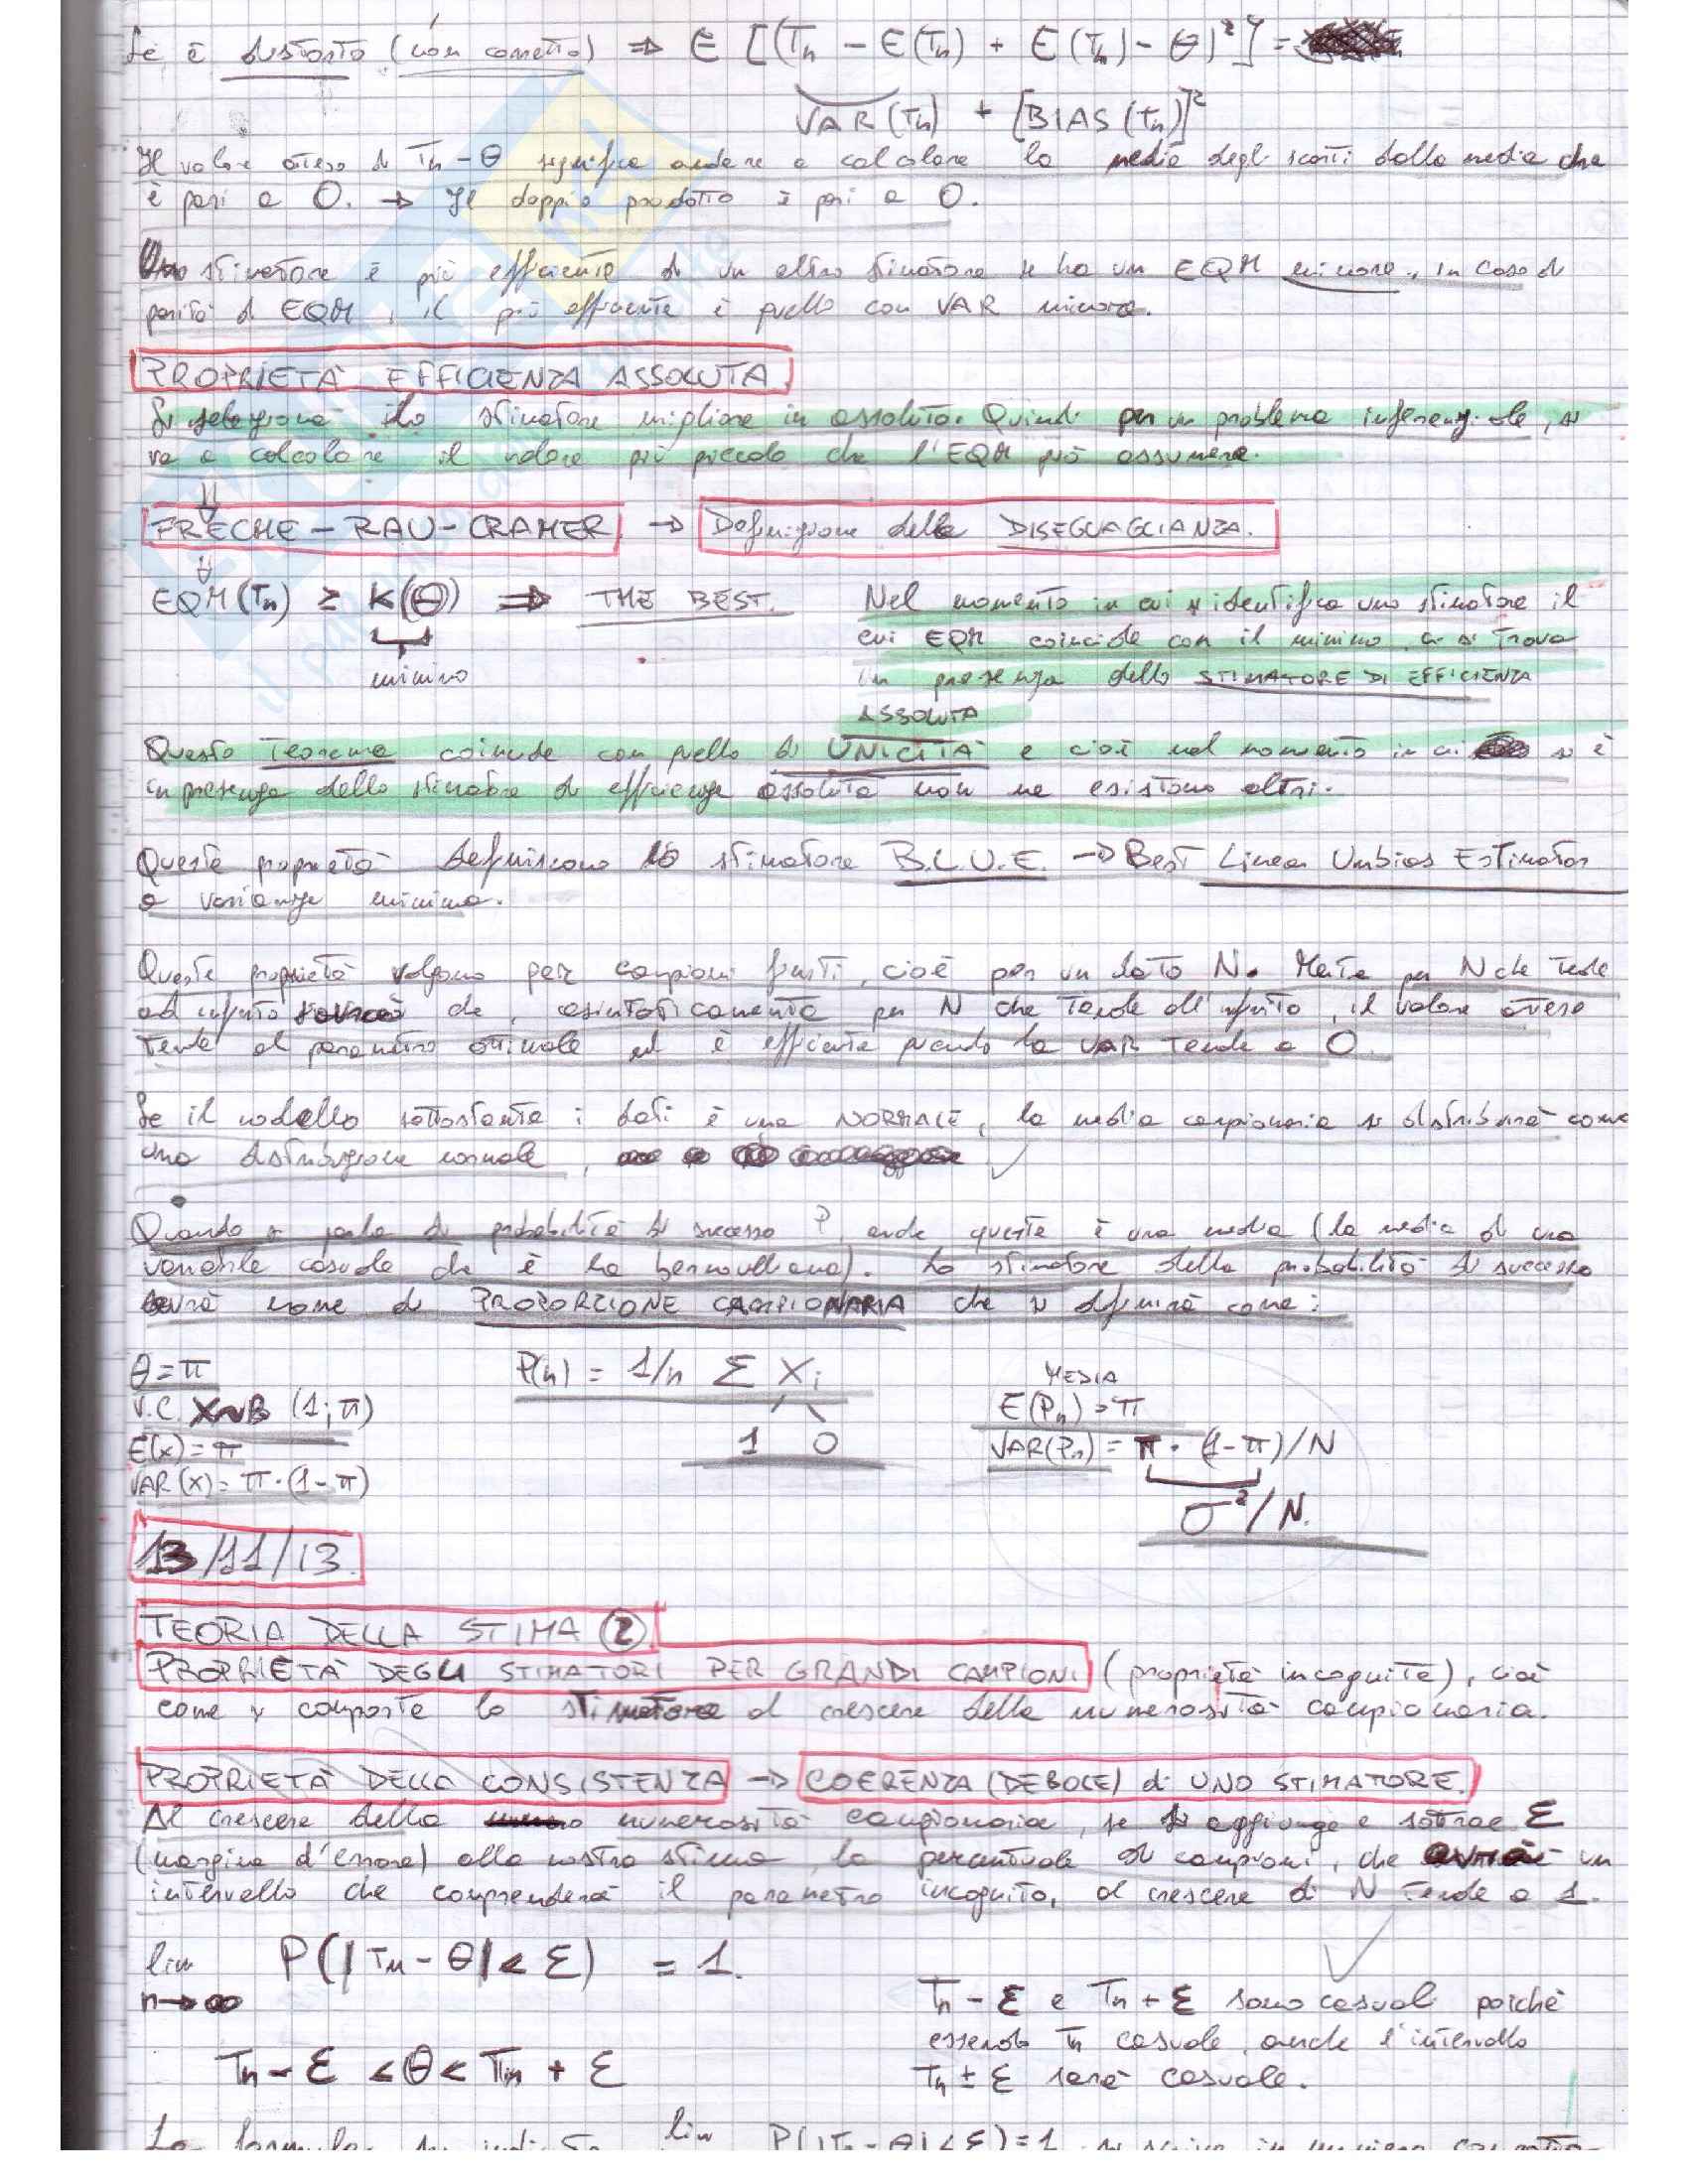 Se è distorto (non corretto) ⇒ E [(Tn - E(Tn) + E(Tn) - θ)²] =
VAR(Tn) + [BIAS(Tn)]²
Il valore atteso di Tn - θ significa andare a calcolare la media degli scarti dalla media che
è pari a 0. → Il doppio prodotto è pari a 0.
Uno stimatore è più efficiente di un altro stimatore se ha un EQM minore, in caso di
parità di EQM, il più efficiente è quello con VAR minore.
PROPRIETÀ EFFICIENZA ASSOLUTA
Si seleziona lo stimatore migliore in assoluto. Quindi per un problema inferenziale, si
va a calcolare il valore più piccolo che l'EQM può assumere.
FRECHE - RAU - CRAMER → Definizione della DISEGUAGLIANZA.
EQM(Tn) ≥ K(θ) ⇒ THE BEST.
minimo
Nel momento in cui si identifica uno stimatore il
cui EQM coincide con il minimo, ci si trova
in presenza dello STIMATORE DI EFFICIENZA
ASSOLUTA
Questo teorema coincide con quello di UNICITÀ e cioè nel momento in cui si è
in presenza dello stimatore di efficienza assoluta non ne esistono altri.
Queste proprietà definiscono lo stimatore B.L.U.E. → Best Linear Umbias Estimator
a varianza minima.
Queste proprietà valgono per campioni finiti, cioè per un dato N. Mentre per N che tende
ad infinito che, asintoticamente per N che tende all'infinito, il valore atteso
tende al parametro ottimale ed è efficiente quando la VAR tende a 0.
Se il modello sottostante i dati è una NORMALE, la media campionaria si distribuirà come
una distribuzione normale,
Quando si parla di probabilità di successo P anche questa è una media (la media di una
variabile casuale che è la bernoulliana). Lo stimatore della probabilità di successo
avrà nome di PROPORZIONE CAMPIONARIA che si definirà come:
θ = π
V.C. X~B (1; π)
E(x) = π
VAR(x) = π·(1-π)
P(n) = 1/n Σ Xi
1 0
MEDIA
E(Pn) = π
VAR(Pn) = π·(1-π)/N
σ²/N.
13/11/13.
TEORIA DELLA STIMA ②
PROPRIETÀ DEGLI STIMATORI PER GRANDI CAMPIONI (proprietà incognite), cioè
come si comporta lo stimatore al crescere della numerosità campionaria.
PROPRIETÀ DELLA CONSISTENZA → COERENZA (DEBOLE) di UNO STIMATORE.
Al crescere della numerosità campionaria, se si aggiunge e sottrae ε
(margine d'errore) alla nostra stima, la percentuale di campioni, che un
intervallo che comprenderà il parametro incognito, al crescere di N tende a 1.
lim P(|Tn - θ| < ε) = 1.
n→∞
Tn - ε < θ < Tn + ε
Tn - ε e Tn + ε sono casuali poichè
essendo Tn casuale, anche l'intervallo
Tn ± ε sarà casuale.
lim P(|Tn - θ| < ε) = 1 si scrive in maniera